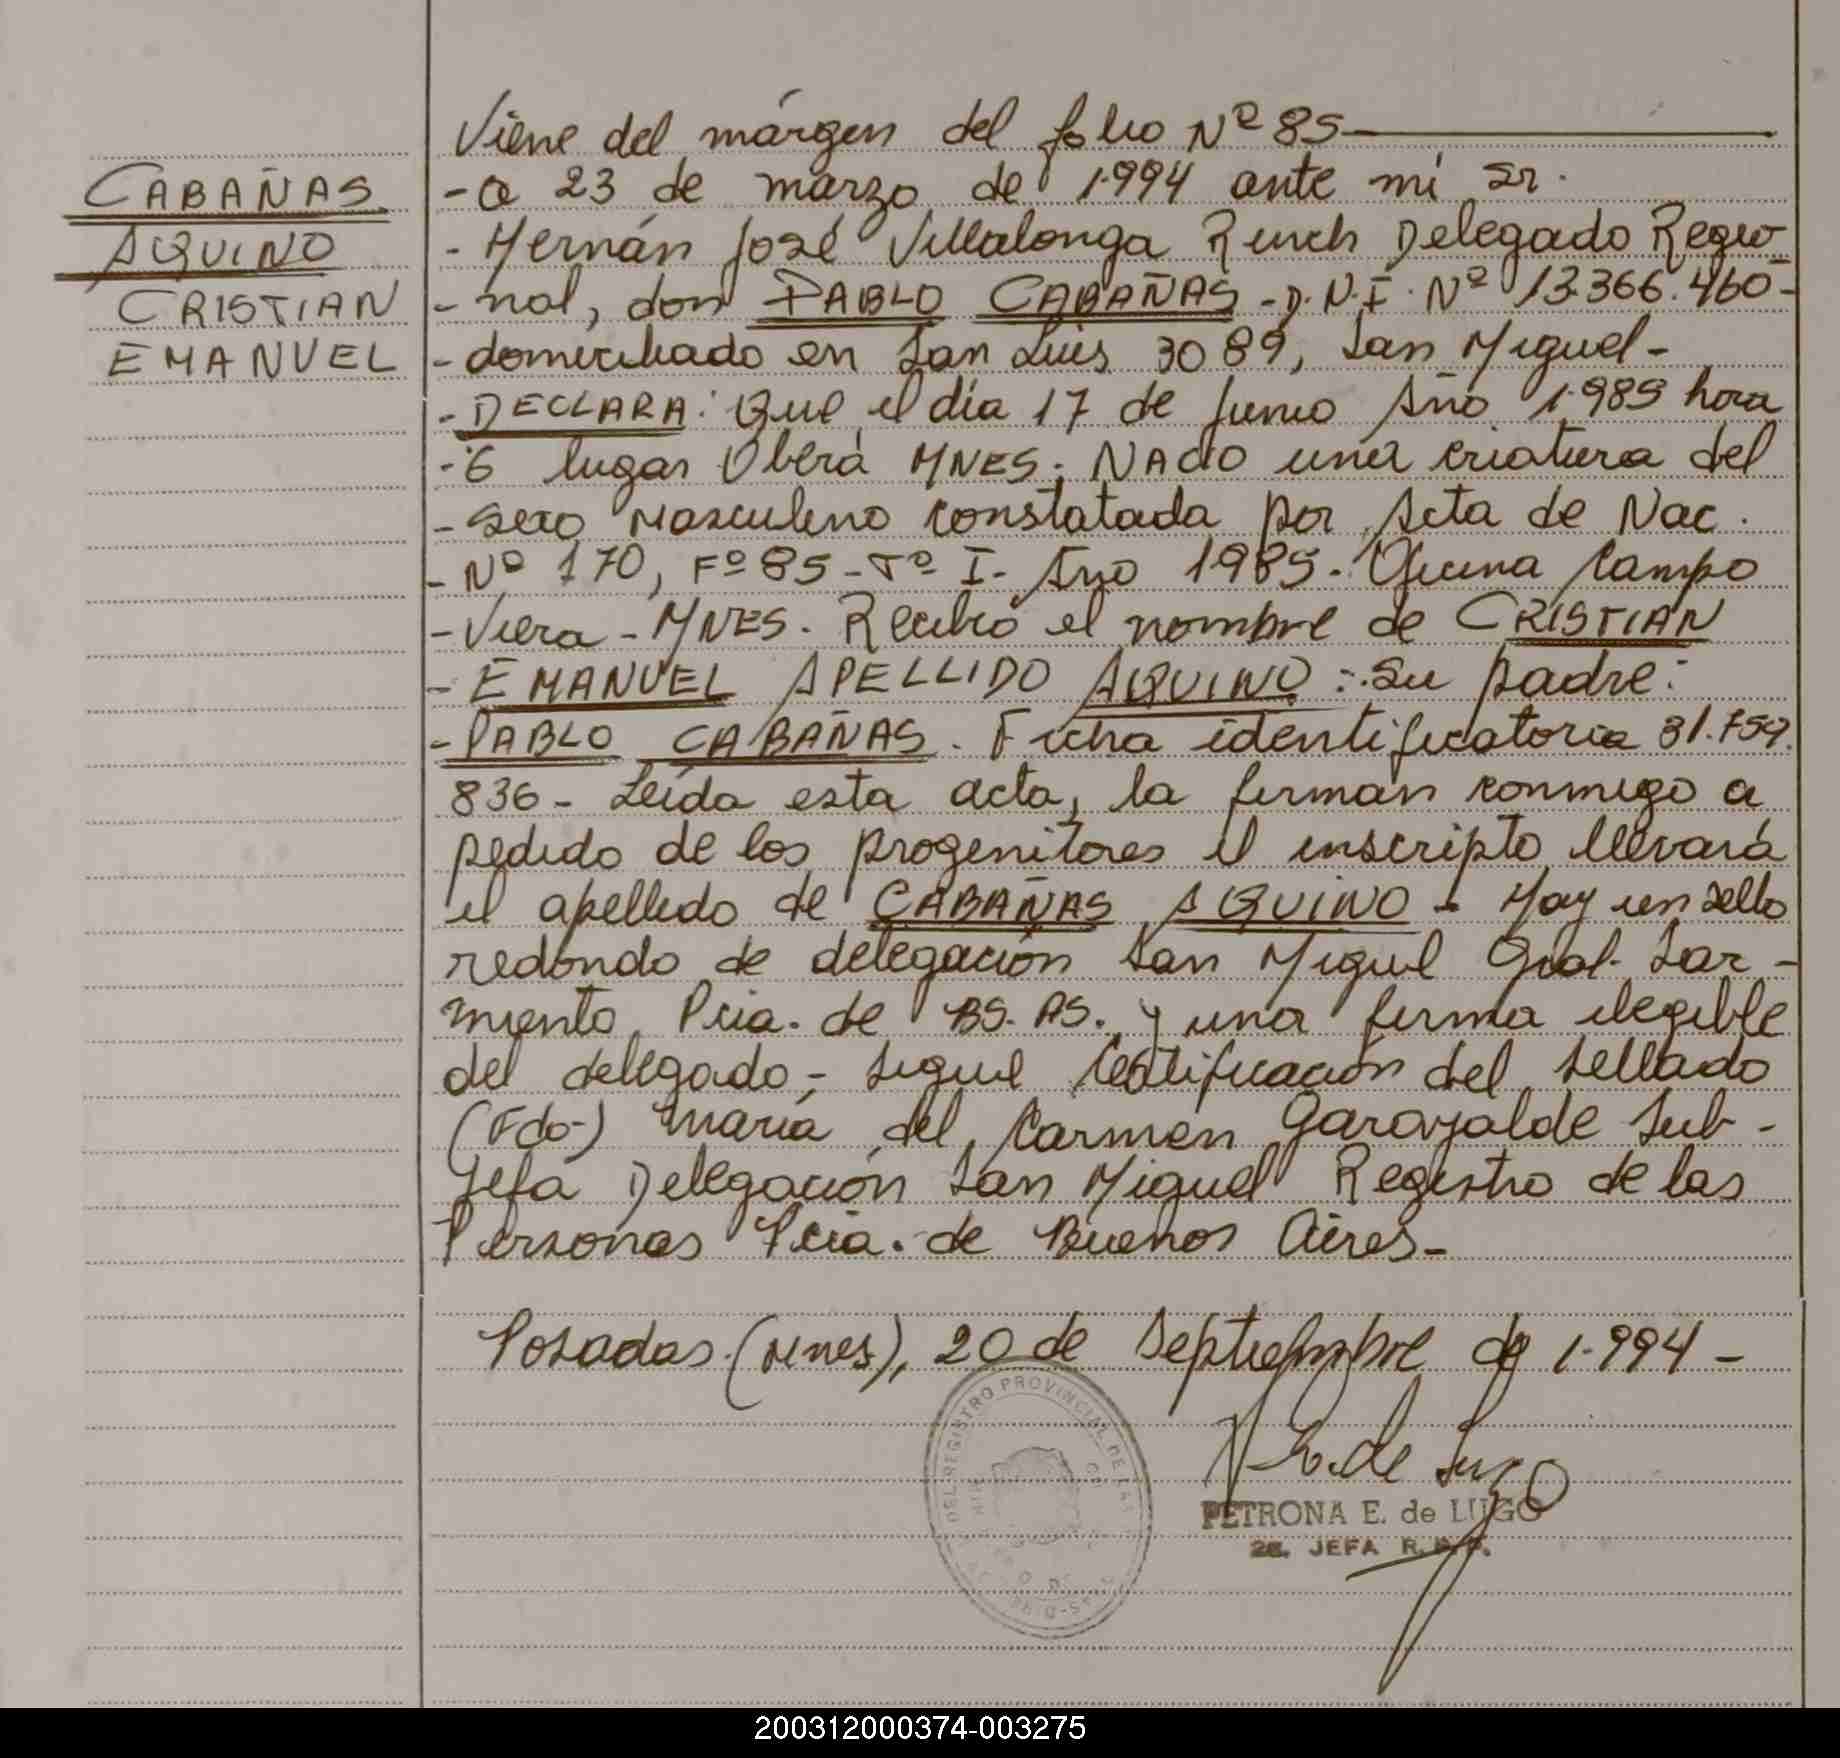 CABAÑAS
AQUINO
CRISTIAN
EMANUEL
Viene del márgen del folio Nº 85
- a 23 de marzo de 1.994 ante mí Sr.
- Hernán José Villalonga Delegado Regio
- nal, don PABLO CABAÑAS - D.N.I. Nº 13.366.460 -
- domiciliado en San Luis 3089, San Miguel -
- DECLARA: Que el día 17 de Junio Año 1.985 hora
- 6 lugar Oberá MNES. NACIO una criatura del
- Sexo Masculino constatada por Acta de Nac.
- Nº 170, Fº 85 - Tº I - Año 1985. Oficina Campo
- Viera - MNES. Recibió el nombre de CRISTIAN
- EMANUEL APELLIDO AQUINO: Su padre:
- PABLO CABAÑAS. Ficha identificatoria 31.759.
836 - Leída esta acta, la firman conmigo a
pedido de los progenitores el inscripto llevará
el apellido de CABAÑAS AQUINO - Hay un sello
redondo de delegación San Miguel Gral. Sar -
miento Pcia. de BS. AS. y una firma ilegible
del delegado - Sigue Certificación del sellado
(Fdo-) María del Carmen Garayalde Sub -
Jefa Delegación San Miguel Registro de las
Personas Pcia. de Buenos Aires -
Posadas (Mnes), 20 de Septiembre de 1.994 -
DEL REGISTRO PROVINCIAL DE LAS
PETRONA E. de LUGO
2a. JEFA R.P.P.
200312000374-003275